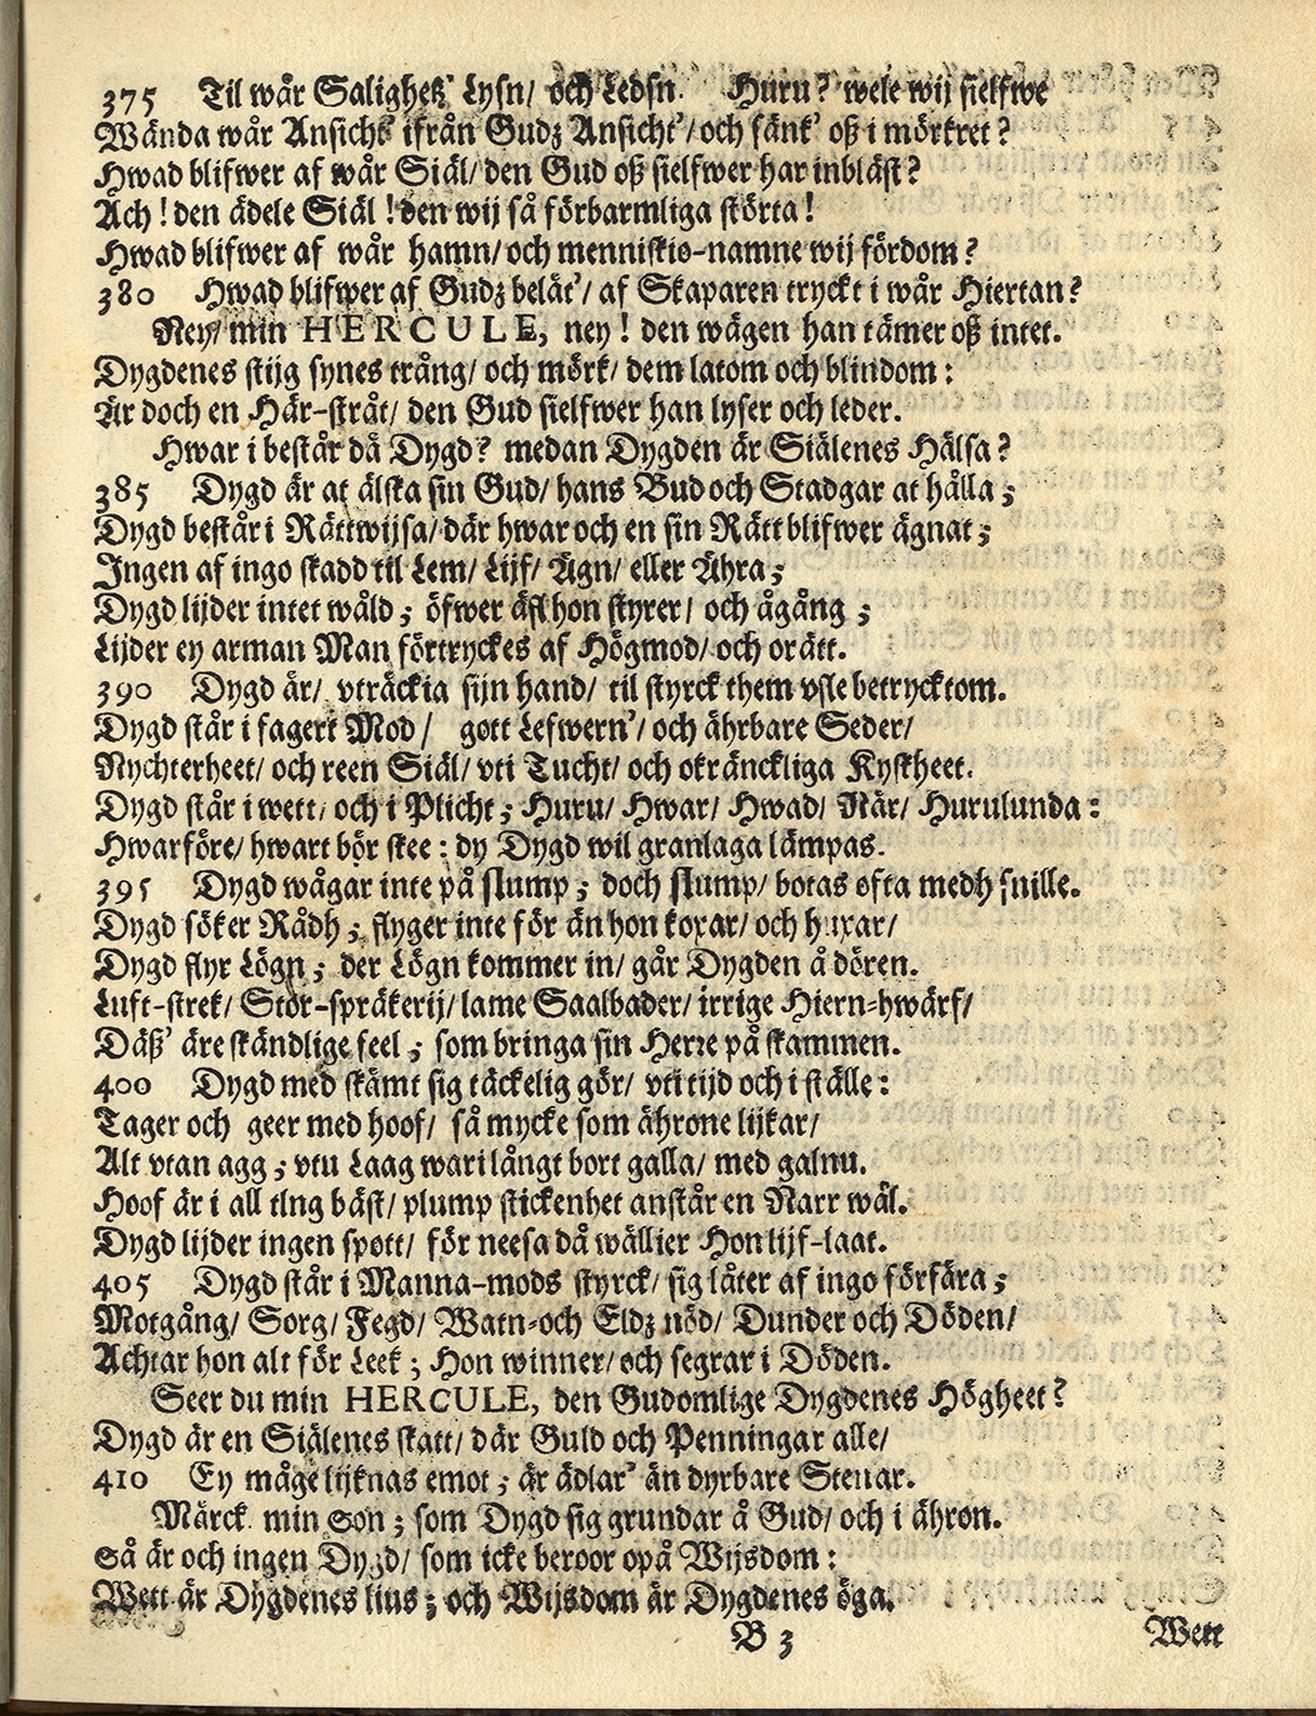 375 Til wår Saligheß' Lysn/ och Ledsn. Huru? wele wij sielfwe
Wända wår Ansicht' ifrån Gudz Ansicht'/ och sänk' oß i mörkret?
Hwad blifwer af wår Siäl/ den Gud oß sielfwer har inbläst?
Ach! den ädele Siäl! den wij så förbarmliga störta!
Hwad blifwer af wår hamn/ och menniskio-namne wij fördom?
380 Hwad blifwer af Gudz belät'/ af Skaparen tryckt i wår Hiertan?
Ney/ min HERCULE, ney! den wägen han tämer oß intet.
Dygdenes stijg synes trång/ och mörk/ dem latom och blindom:
Är doch en Här-stråt/ den Gud sielfwer han lyser och leder.
Hwar i består då Dygd? medan Dygden är Siälenes Hälsa?
385 Dygd är at älska sin Gud/ hans Bud och Stadgar at hålla;
Dygd består i Rättwijsa/ där hwar och en sin Rätt blifwer ägnat;
Ingen af ingo skadd til Lem/ Lijf/ Ägn/ eller Ähra;
Dygd lijder intet wåld; öfwer äfl hon styrer/ och ågång;
Lijder ey arman Man förtryckes af Högmod/ och orätt.
390 Dygd är/ vträckia sijn hand/ til styrck them vsle betrycktom.
Dygd står i fagert Mod/ gott Lefwern'/ och ährbare Seder/
Nychterheet/ och reen Siäl/ vti Tucht/ och okränckliga Kyskheet.
Dygd står i wett/ och i Plicht; Huru/ Hwar/ Hwad/ När/ Hurulunda:
Hwarföre/ hwart bör skee: dy Dygd wil granlaga lämpas.
395 Dygd wågar inte på slump; doch slump/ botas ofta medh snille.
Dygd söker Rådh; flyger inte för än hon koxar/ och huxar/
Dygd flyr Lögn; der Lögn kommer in/ går Dygden å dören.
Luft-strek/ Stor-spräkerij/ lame Saalbader/ irrige Hiern-hwärf/
Däß' äre skändlige feel; som bringa sin Herre på skammen.
400 Dygd med skämt sig täckelig gör/ vti tijd och i ställe:
Tager och geer med hoof/ så mycke som ährone lijkar/
Alt vtan agg; vtu Laag wari långt bort galla/ med galnu.
Hoof är i all tIng bäst/ plump stickenhet anstår en Narr wäl.
Dygd lijder ingen spott/ för neesa då wällier Hon lijf-laat.
405 Dygd står i Manna-mods styrck/ sig låter af ingo förfära;
Motgång/ Sorg/ Fegd/ Watn-och Eldz nöd/ Dunder och Döden/
Achtar hon alt för Leek; Hon winner/ och segrar i Döden.
Seer du min HERCULE, den Gudomlige Dygdenes Högheet?
Dygd är en Siälenes skatt/ där Guld och Penningar alle/
410 Ey måge lijknas emot; är ädlar' än dyrbare Stenar.
Märck min Son; som Dygd sig grundar å Gud/ och i ähron.
Så är och ingen Dygd/ som icke beroor opå Wijsdom:
Wett är Dygdenes lius; och Wijsdom är Dygdenes öga.
B 3 Wett